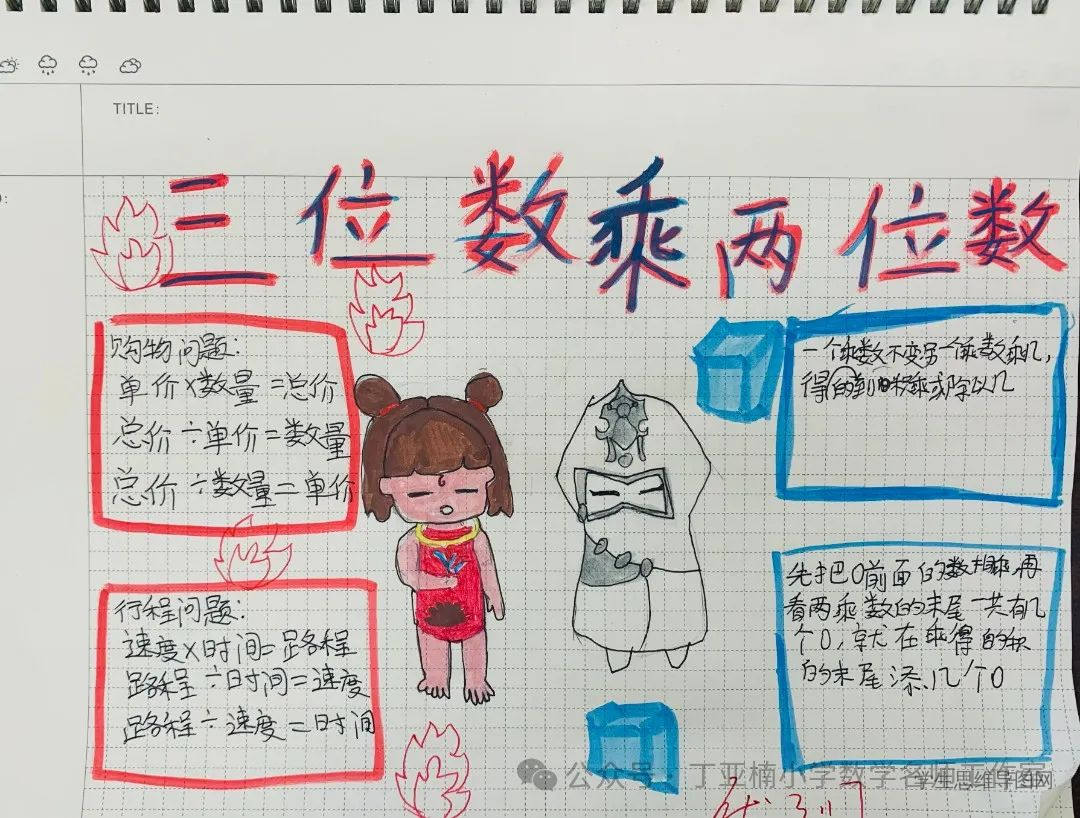 TITLE:
三位数乘两位数
购物问题:
单价×数量=总价
总价÷单价=数量
总价÷数量=单价
行程问题:
速度×时间=路程
路程÷时间=速度
路程÷速度=时间
一个乘数不变另一个乘数乘几,
得的到积乘或除以几
先把0前面的数相乘,再
看两乘数的末尾一共有几
个0,就在乘得的积
的末尾添几个0
公众号 丁亚楠小学数学名师工作室
学生思维导图网